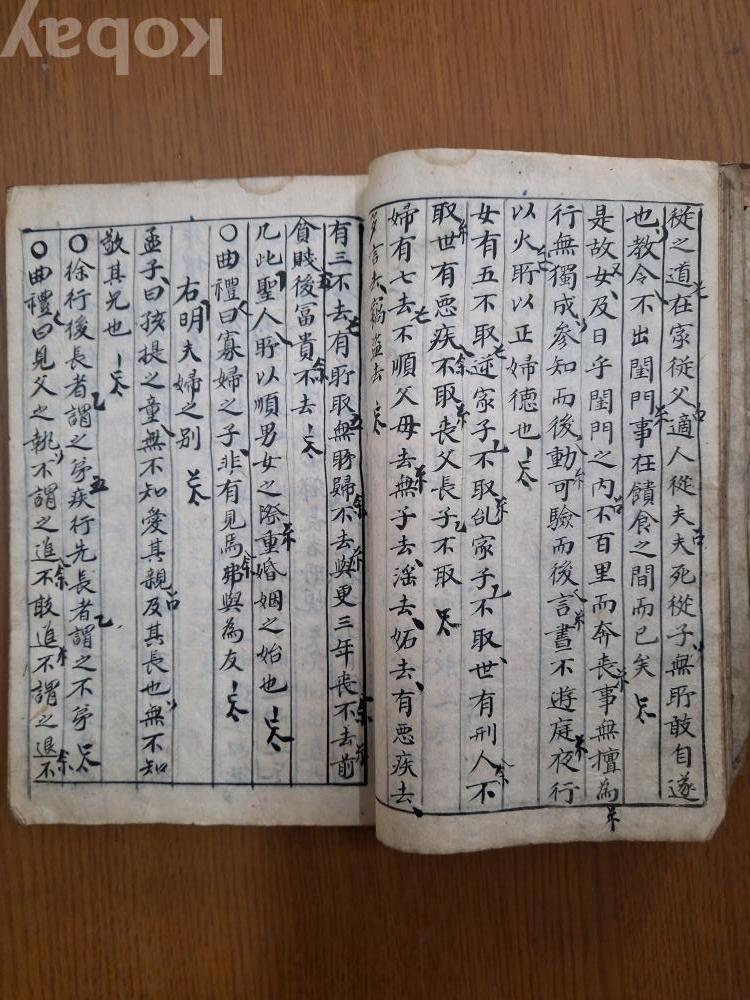 從之道在家從父適人從夫夫死從子無所敢自遂
也教令不出閨門事在饋食之間而已矣
是故女及日乎閨門之內不百里而奔喪事無擅為
行無獨成參知而後動可驗而後言晝不遊庭夜行
以火所以正婦德也
女有五不取逆家子不取乱家子不取世有刑人不
取世有悪疾不取喪父長子不取
婦有七去不順父母去無子去淫去妬去有悪疾去
多言去竊盗去
有三不去有所取無所歸不去與更三年喪不去前
貧賤後富貴不去
凡此聖人所以順男女之際重婚姻之始也
○曲禮曰寡婦之子非有見焉弗與為友
右明夫婦之別
孟子曰孩提之童無不知愛其親及其長也無不知
敬其兄也
○徐行後長者謂之弟疾行先長者謂之不弟
○曲禮曰見父之執不謂之進不敢進不謂之退不
kobay